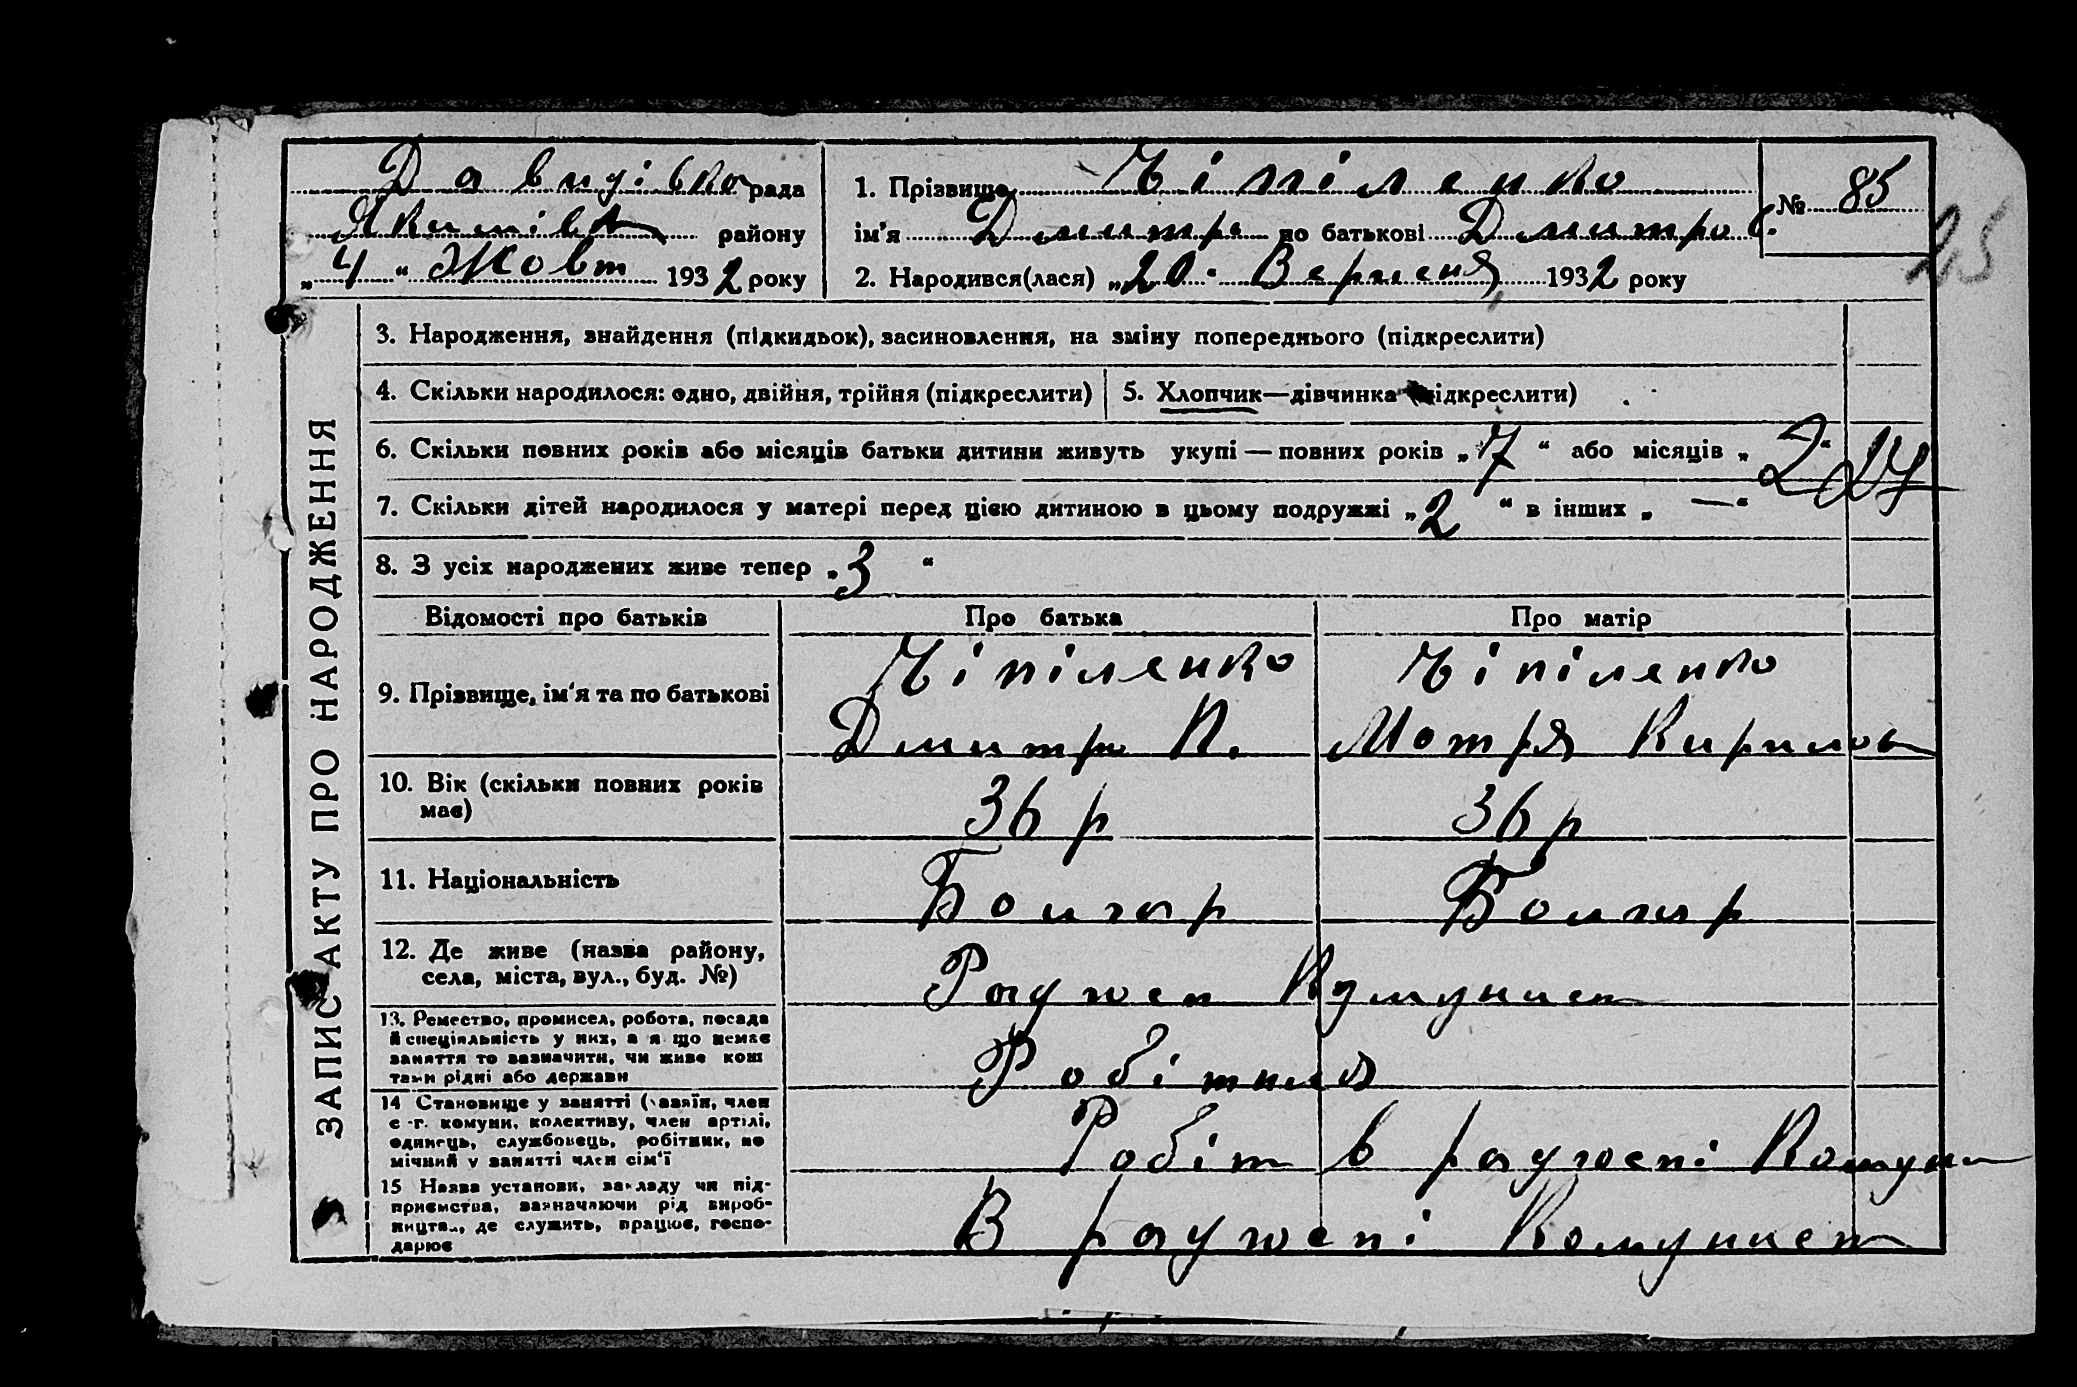 Давидівка рада
Якимівка району
„4“ Жовт 1932 року
1. Прізвище Чіпіленко
ім'я Дмитро по батькові Дмитров.
2. Народився(лася) „20“ Вересня 1932 року
№ 85
25
ЗАПИС АКТУ ПРО НАРОДЖЕННЯ
3. Народження, знайдення (підкидьок), засиновлення, на зміну попереднього (підкреслити)
4. Скільки народилося: одно, двійня, трійня (підкреслити)
5. Хлопчик—дівчинка (підкреслити)
6. Скільки повних років або місяців батьки дитини живуть укупі — повних років „7“ або місяців „
7. Скільки дітей народилося у матері перед цією дитиною в цьому подружжі „2“ в інших „—“
8. З усіх народжених живе тепер „3“
Відомості про батьків Про батька Про матір
9. Прізвище, ім'я та по батькові
Чіпіленко Чіпіленко
Дмитро П. Мотря Кирилов
10. Вік (скільки повних років має)
36 р 36 р
11. Національність
Болгар Болгар
12. Де живе (назва району, села, міста, вул., буд. №)
Радгосп Комунист
13. Ремество, промисел, робота, посада
й спеціяльність у них, а я що немає
заняття то зазначити, чи живе кош
тами рідні або держави
14 Становище у занятті (хазяїн, член
с.-г. комуни, колективу, член артілі,
одинець, службовець, робітник, по
мічний у занятті член сім'ї
Робіт в радгоспі Комуни
15 Назва установи, закладу чи під-
приємства, зазначаючи рід вироб-
ництва, де служить, працює, госпо-
дарює
В радгоспі Комунист